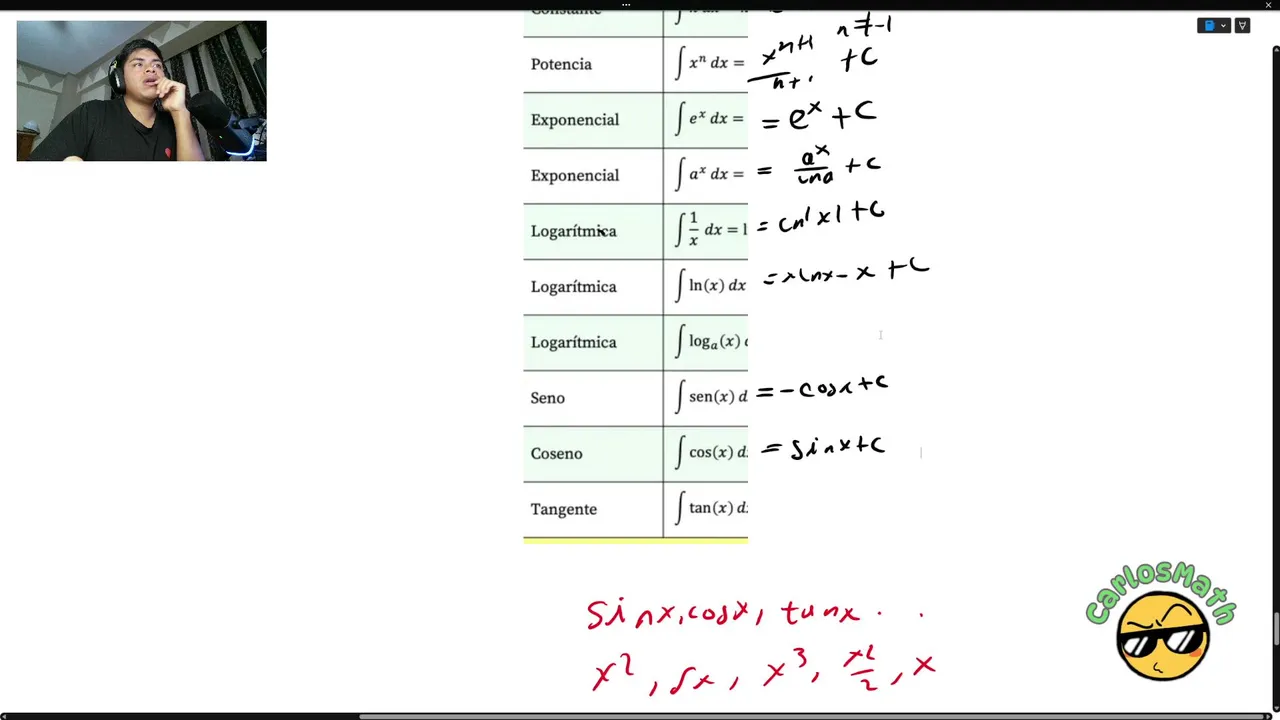 Constante
n ≠ -1
Potencia ∫ xⁿ dx = xⁿ⁺¹ / n+1 + C
Exponencial ∫ eˣ dx = = eˣ + C
Exponencial ∫ aˣ dx = = aˣ / lna + C
Logarítmica ∫ 1/x dx = l = ln|x| + C
Logarítmica ∫ ln(x) dx = xlnx - x + C
Logarítmica ∫ logₐ(x)
Seno ∫ sen(x) d = -cosx + C
Coseno ∫ cos(x) d = sinx + C
Tangente ∫ tan(x) d
sinx, cosx, tanx . .
x², 5x, x³, x²/2, x
CarlosMath